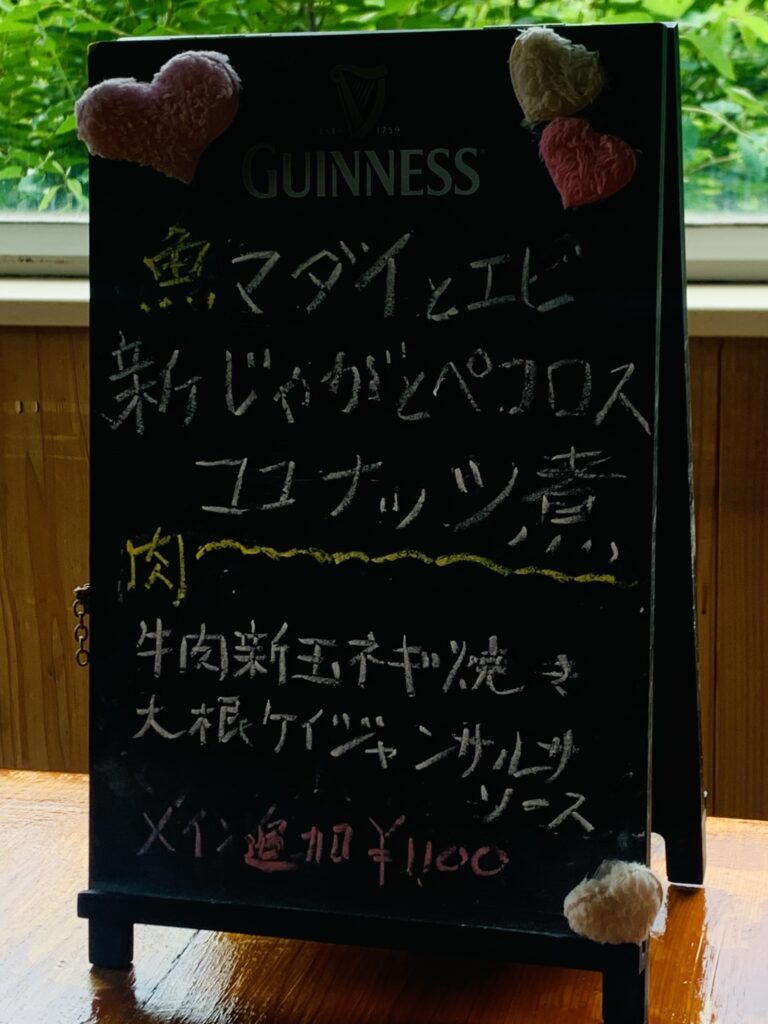 ESTD 1759
GUINNESS
魚 マダイとエビ
新じゃがとペコロス
ココナッツ煮
肉
牛肉新玉ネギソ焼き
大根ケイジャンサルサ
ソース
メイン追加¥1,100